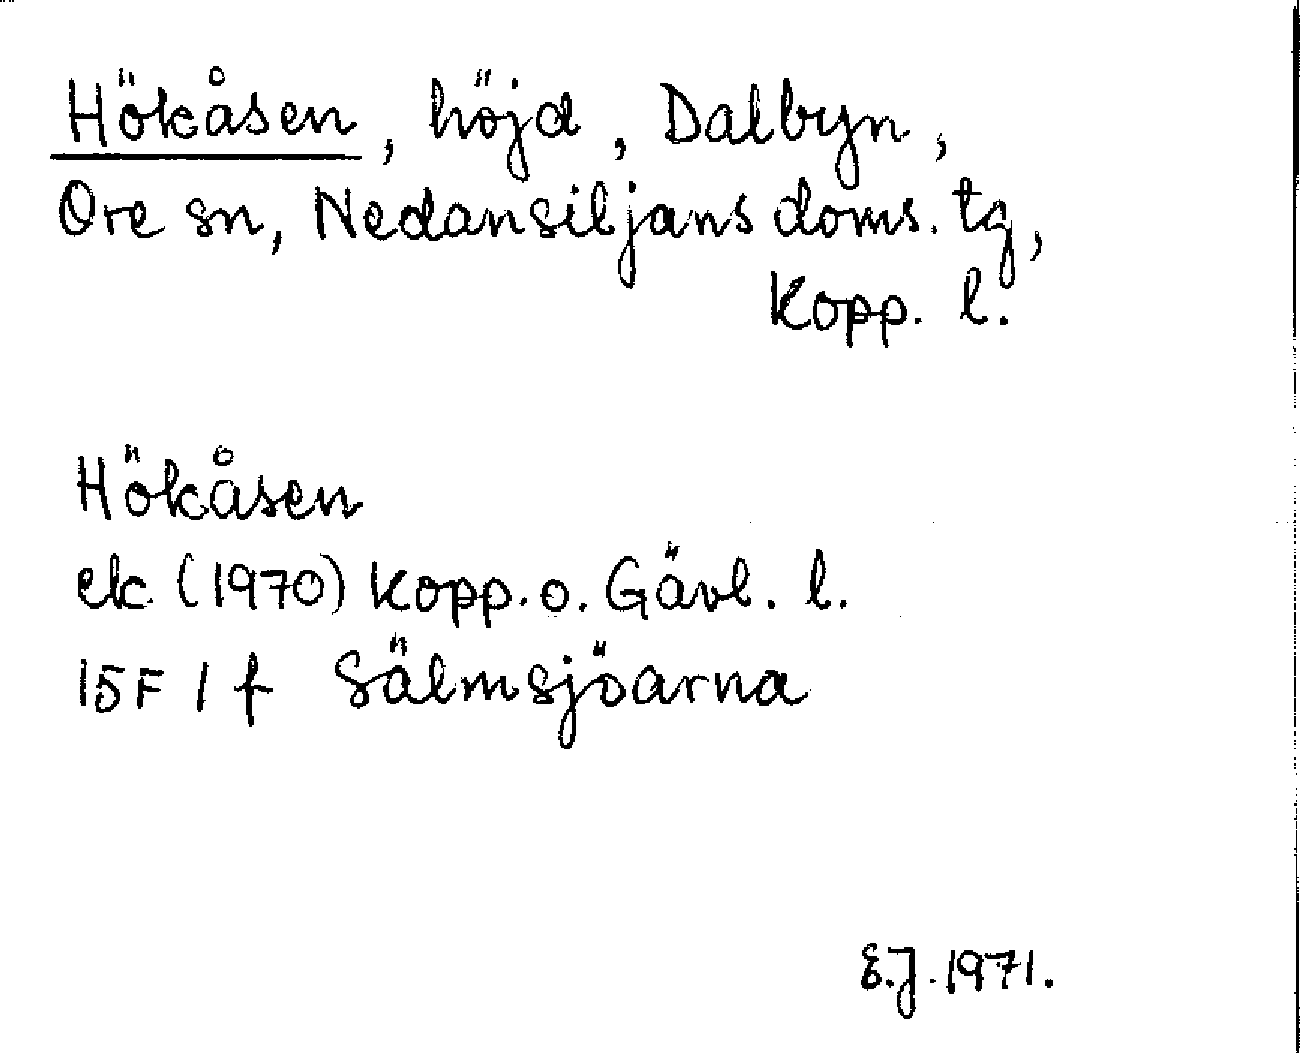 Hökåsen, höjd, Dalbyn,
Ore sn, Nedansiljans doms. tg,
Kopp. l.
Hökåsen
ek (1970) Kopp. o. Gävl. l.
15F 1 f Sälmsjöarna
E.J. 1971.